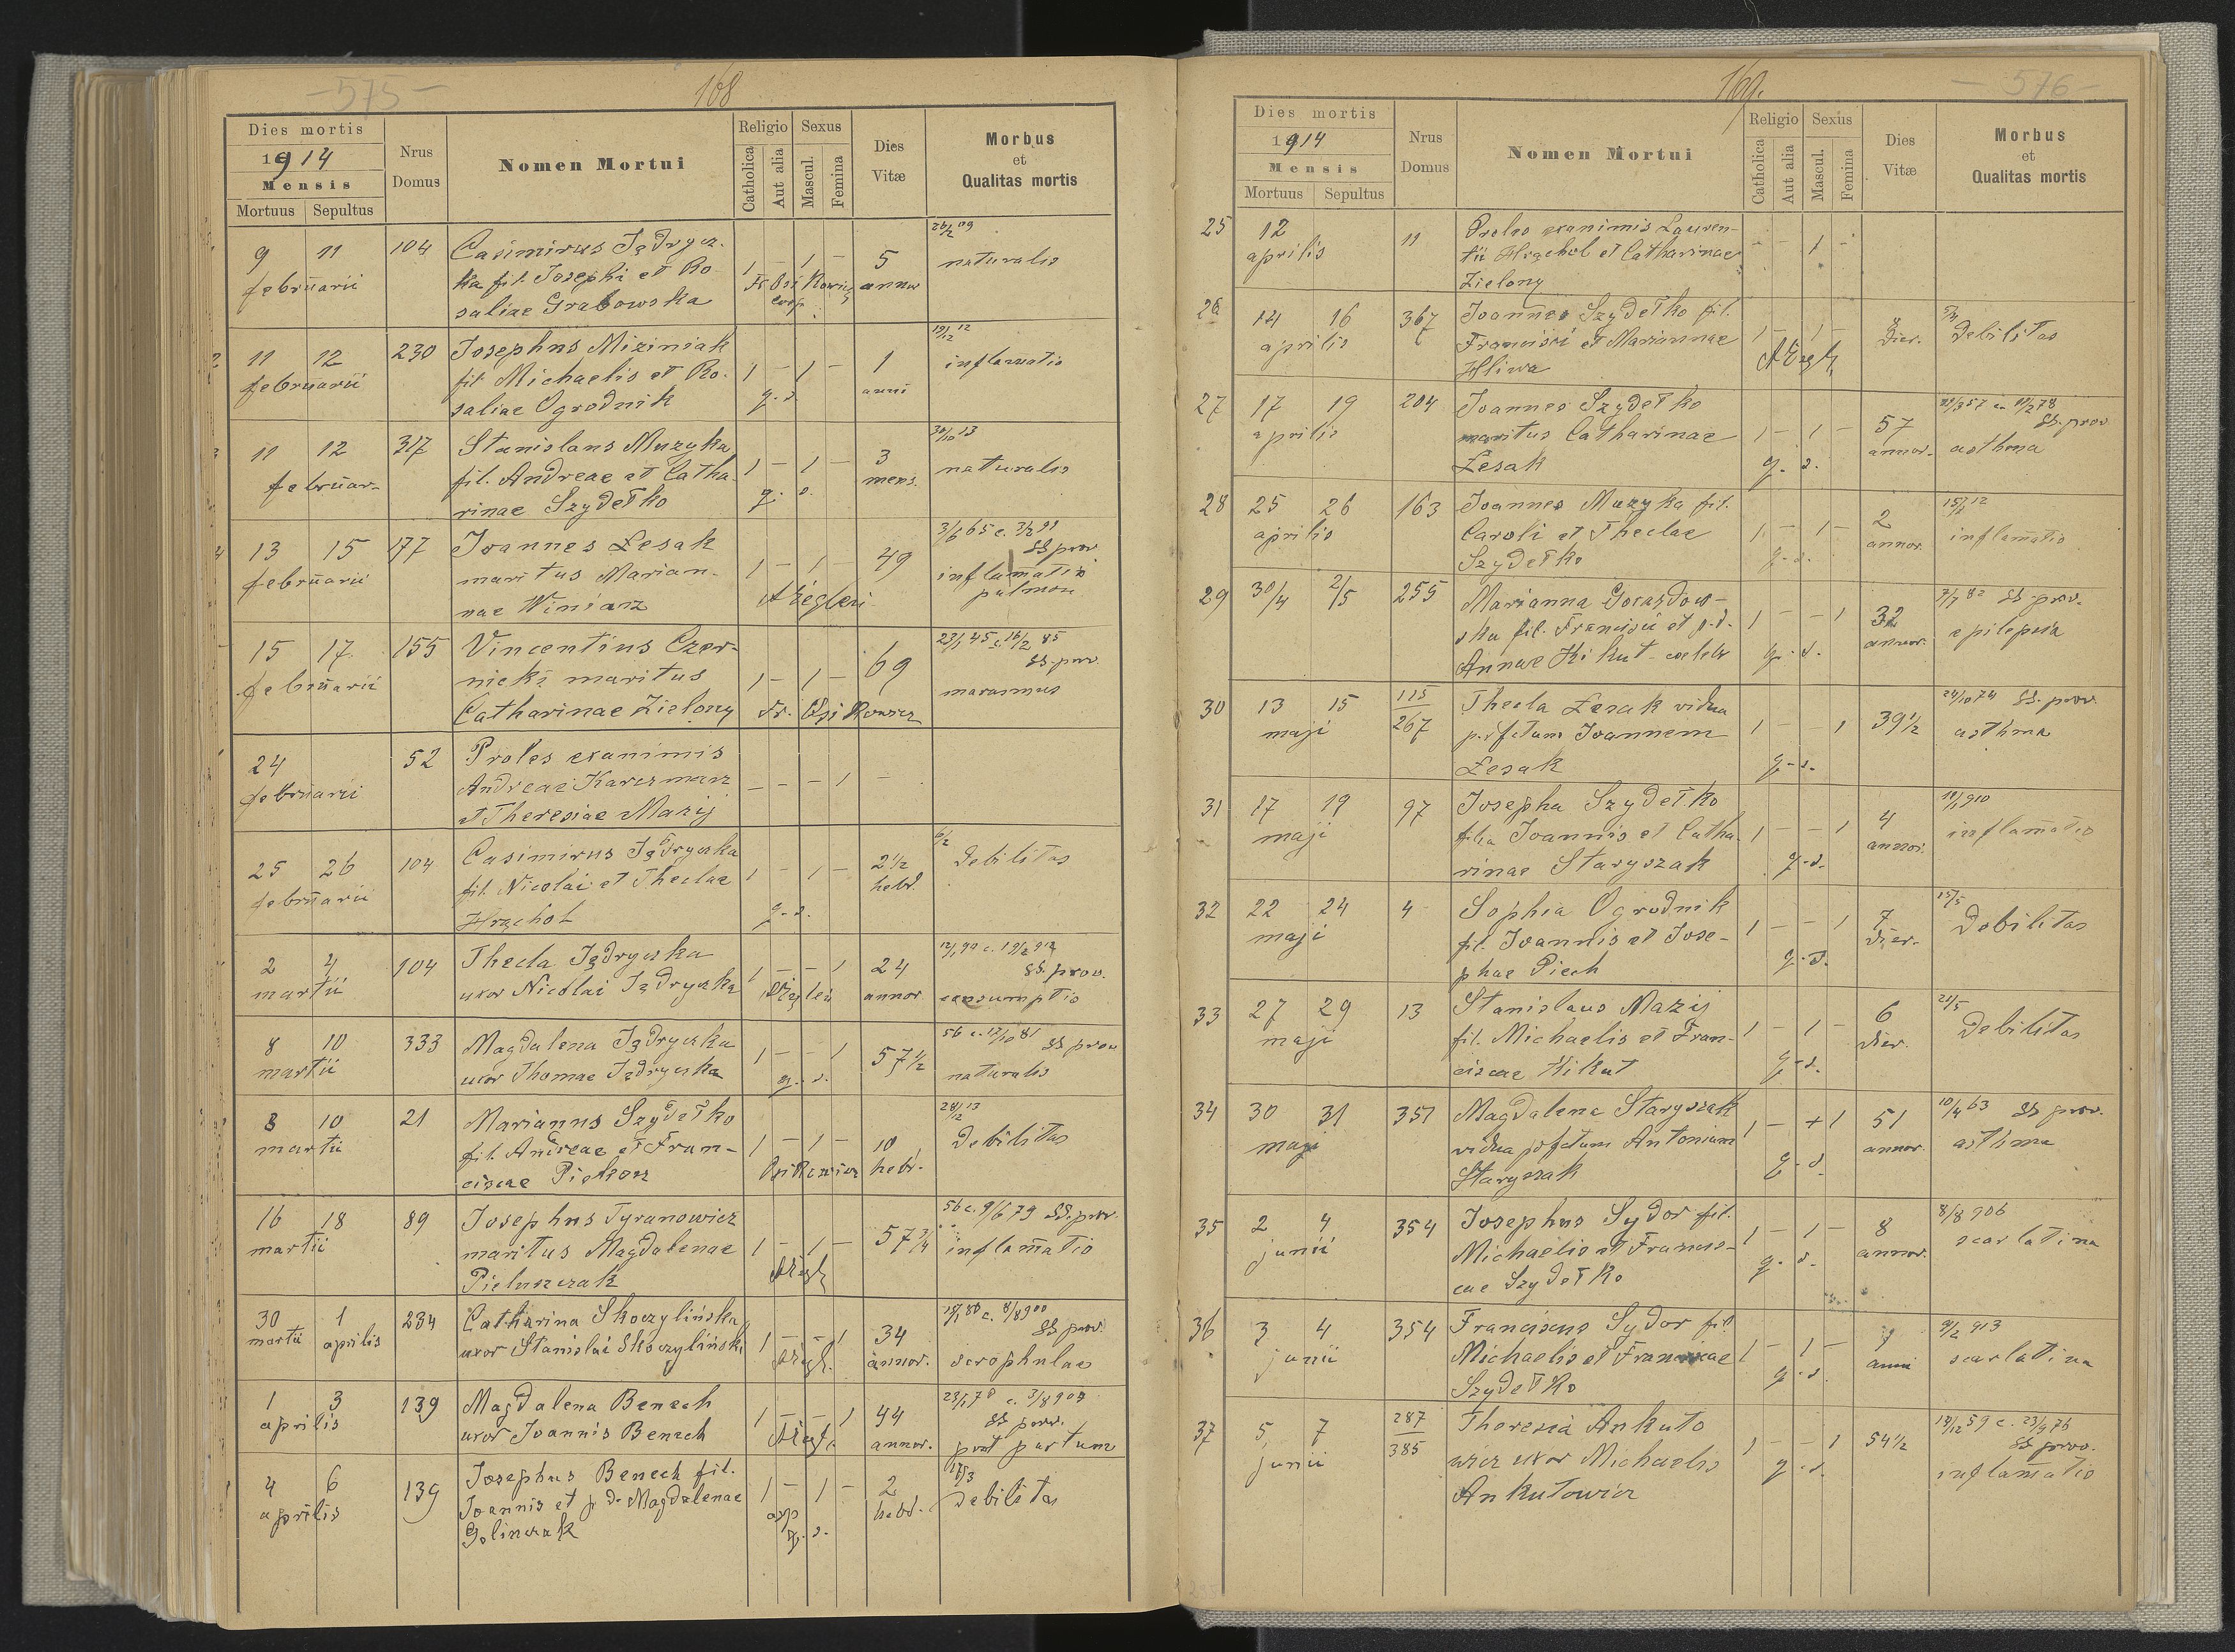 - 575 -
168
Dies mortis
1914
Mensis
Mortuus Sepultus
Nrus
Domus
Nomen Mortui
Religio
Catholica
Aut alia
Sexus
Mascul.
Femina
Dies
Vitæ
Morbus
et
Qualitas mortis
9 11 104 Casimirus Jędrycz- 1 - 1 - 5 26/2 09
februarii ka fil. Josephi et Ro- annor naturalis
saliae Grabowska
2 11 12 230 Josephus Miziniak 1 - 1 - 1 19/12 12
februarii fil. Michaelis et Ro- anni inflamatio
saliae Ogrodnik q. s.
3 11 12 317 Stanislaus Muzyka 1 - 1 - 3 30/10 13
februar- fil. Andreae et Catha- mens. naturalis
rinae Szydełko q. s.
4 13 15 177 Joannes Lesak 1 - 1 - 49 3/6 65 c. 3/2 91
februarii maritus Marian- SS prov.
nae Winiarz A Żegleń inflamatio
pulmon
15 17 155 Vincentius Czer- 1 - 1 - 69 23/1 45 c. 16/2 85
februarii nicki maritus SS. prov.
Catharinae Zielony Fr. Osikowicz marasmus
24 52 Proles exanimis - - - 1 -
februarii Andreae Karczmarz
et Theresiae Mazij
25 26 104 Casimirus Jędryczka 1 - 1 - 2 1/2 6/2
februarii fil. Nicolai et Theclae hebd. debilitas
Hrąchol q. s.
2 4 104 Thecla Jędryczka 1 - - 1 24
martii uxor Nicolai Jędryczka Żegleń annor SS. prov.
consumptio
8 10 333 Magdalena Jędryczka 1 - - 1 57 1/2 56 c. 17/10 81 SS prov
martii uxor Thomae Jędryczka q. s. naturalis
8 10 21 Mariannus Szydełko 1 - 1 - 10 28/12 13
martii fil. Andreae et Fran- hebd. debilitas
ciscae Piekosz Osikowicz
16 18 89 Josephus Tyranowicz 1 - 1 - 57 3/4 56 c. 9/6 79 SS. prov.
martii maritus Magdalenae inflamatio
Pieluszczak AŻegl
30 1 234 Catharina Skoczylińska 1 - - 1 34
martii aprilis uxor Stanislai Skoczyliński AŻegl. annor. SS prov.
scrophulae
1 3 139 Magdalena Benech 1 - - 1 44
aprilis uxor Joannis Benech AŻegl. annor. SS prov.
post partum
4 6 139 Josephus Benech fil. 1 - 1 - 2
aprilis Joannis et p. d. Magdalenae hebd. debilitas
Golinczak q. s.
169.
- 576 -
Dies mortis
1914
Mensis
Mortuus Sepultus
Nrus
Domus
Nomen Mortui
Religio
Catholica
Aut alia
Sexus
Mascul.
Femina
Dies
Vitæ
Morbus
et
Qualitas mortis
25 12 11 Proles exanimis Lauren- - - 1 -
aprilis tii Hrąchol et Catharinae
Zielony
26 14 16 367 Joannes Szydełko fil. 1 - 1 - 8
aprilis Francisci et Mariannae dier. debilitas
Hliwa AŻegl.
27 17 19 204 Joannes Szydełko 1 - 1 - 57
aprilis maritus Catharinae annor. SS. prov
Lesak q. s. asthma
28 25 26 163 Joannes Muzyka fil. 1 - 1 - 2
aprilis Caroli et Theclae annor. inflamatio
Szydełko q. s.
29 30/4 2/5 255 Marianna Gorazdow- 1 - - 1 32 7/7 82 SS. prov.
ska fil. Francisci et p. d. annor. epilepsia
Annae Kikut - caelebs q. s.
30 13 15 115/267 Thecla Lesak vidua 1 - - 1 39 1/2 24/10 74 SS. prov.
maji p. defctum Joannem asthma
Lesak q. s.
31 17 19 97 Josepha Szydełko 1 - - 1 4
maji filia Joannis et Catha- annor. inflamatio
rinae Staryszak q. s.
32 22 24 4 Sophia Ogrodnik 1 - - 1 7 15/5
maji fil. Joannis et Jose- dier. debilitas
phae Piech q. s.
33 27 29 13 Stanislaus Mazij 1 - 1 - 6 21/5
maji fil. Michaelis et Fran- dier. debilitas
ciscae Kikut q. s.
34 30 31 351 Magdalena Staryszak 1 - + 1 51 10/4 63 SS prov.
maji vidua p. defctum Antonium annor. asthma
Staryszak q. s.
35 2 4 354 Josephus Sydor fil. 1 - 1 - 8 8/8 906
junii Michaelis et Francis- annor. scarlatina
cae Szydełko q. s.
36 3 4 354 Franciscus Sydor fil. 1 - 1 - 1 9/2 913
junii Michaelis et Franciscae anni scarlatina
Szydełko q. s.
37 5 7 287/385 Theresia Ankuto 1 - - 1 54 1/2 14/12 59 c. 23/9 76
junii wicz uxor Michaelis SS prov.
Ankutowicz q. s. inflamatio